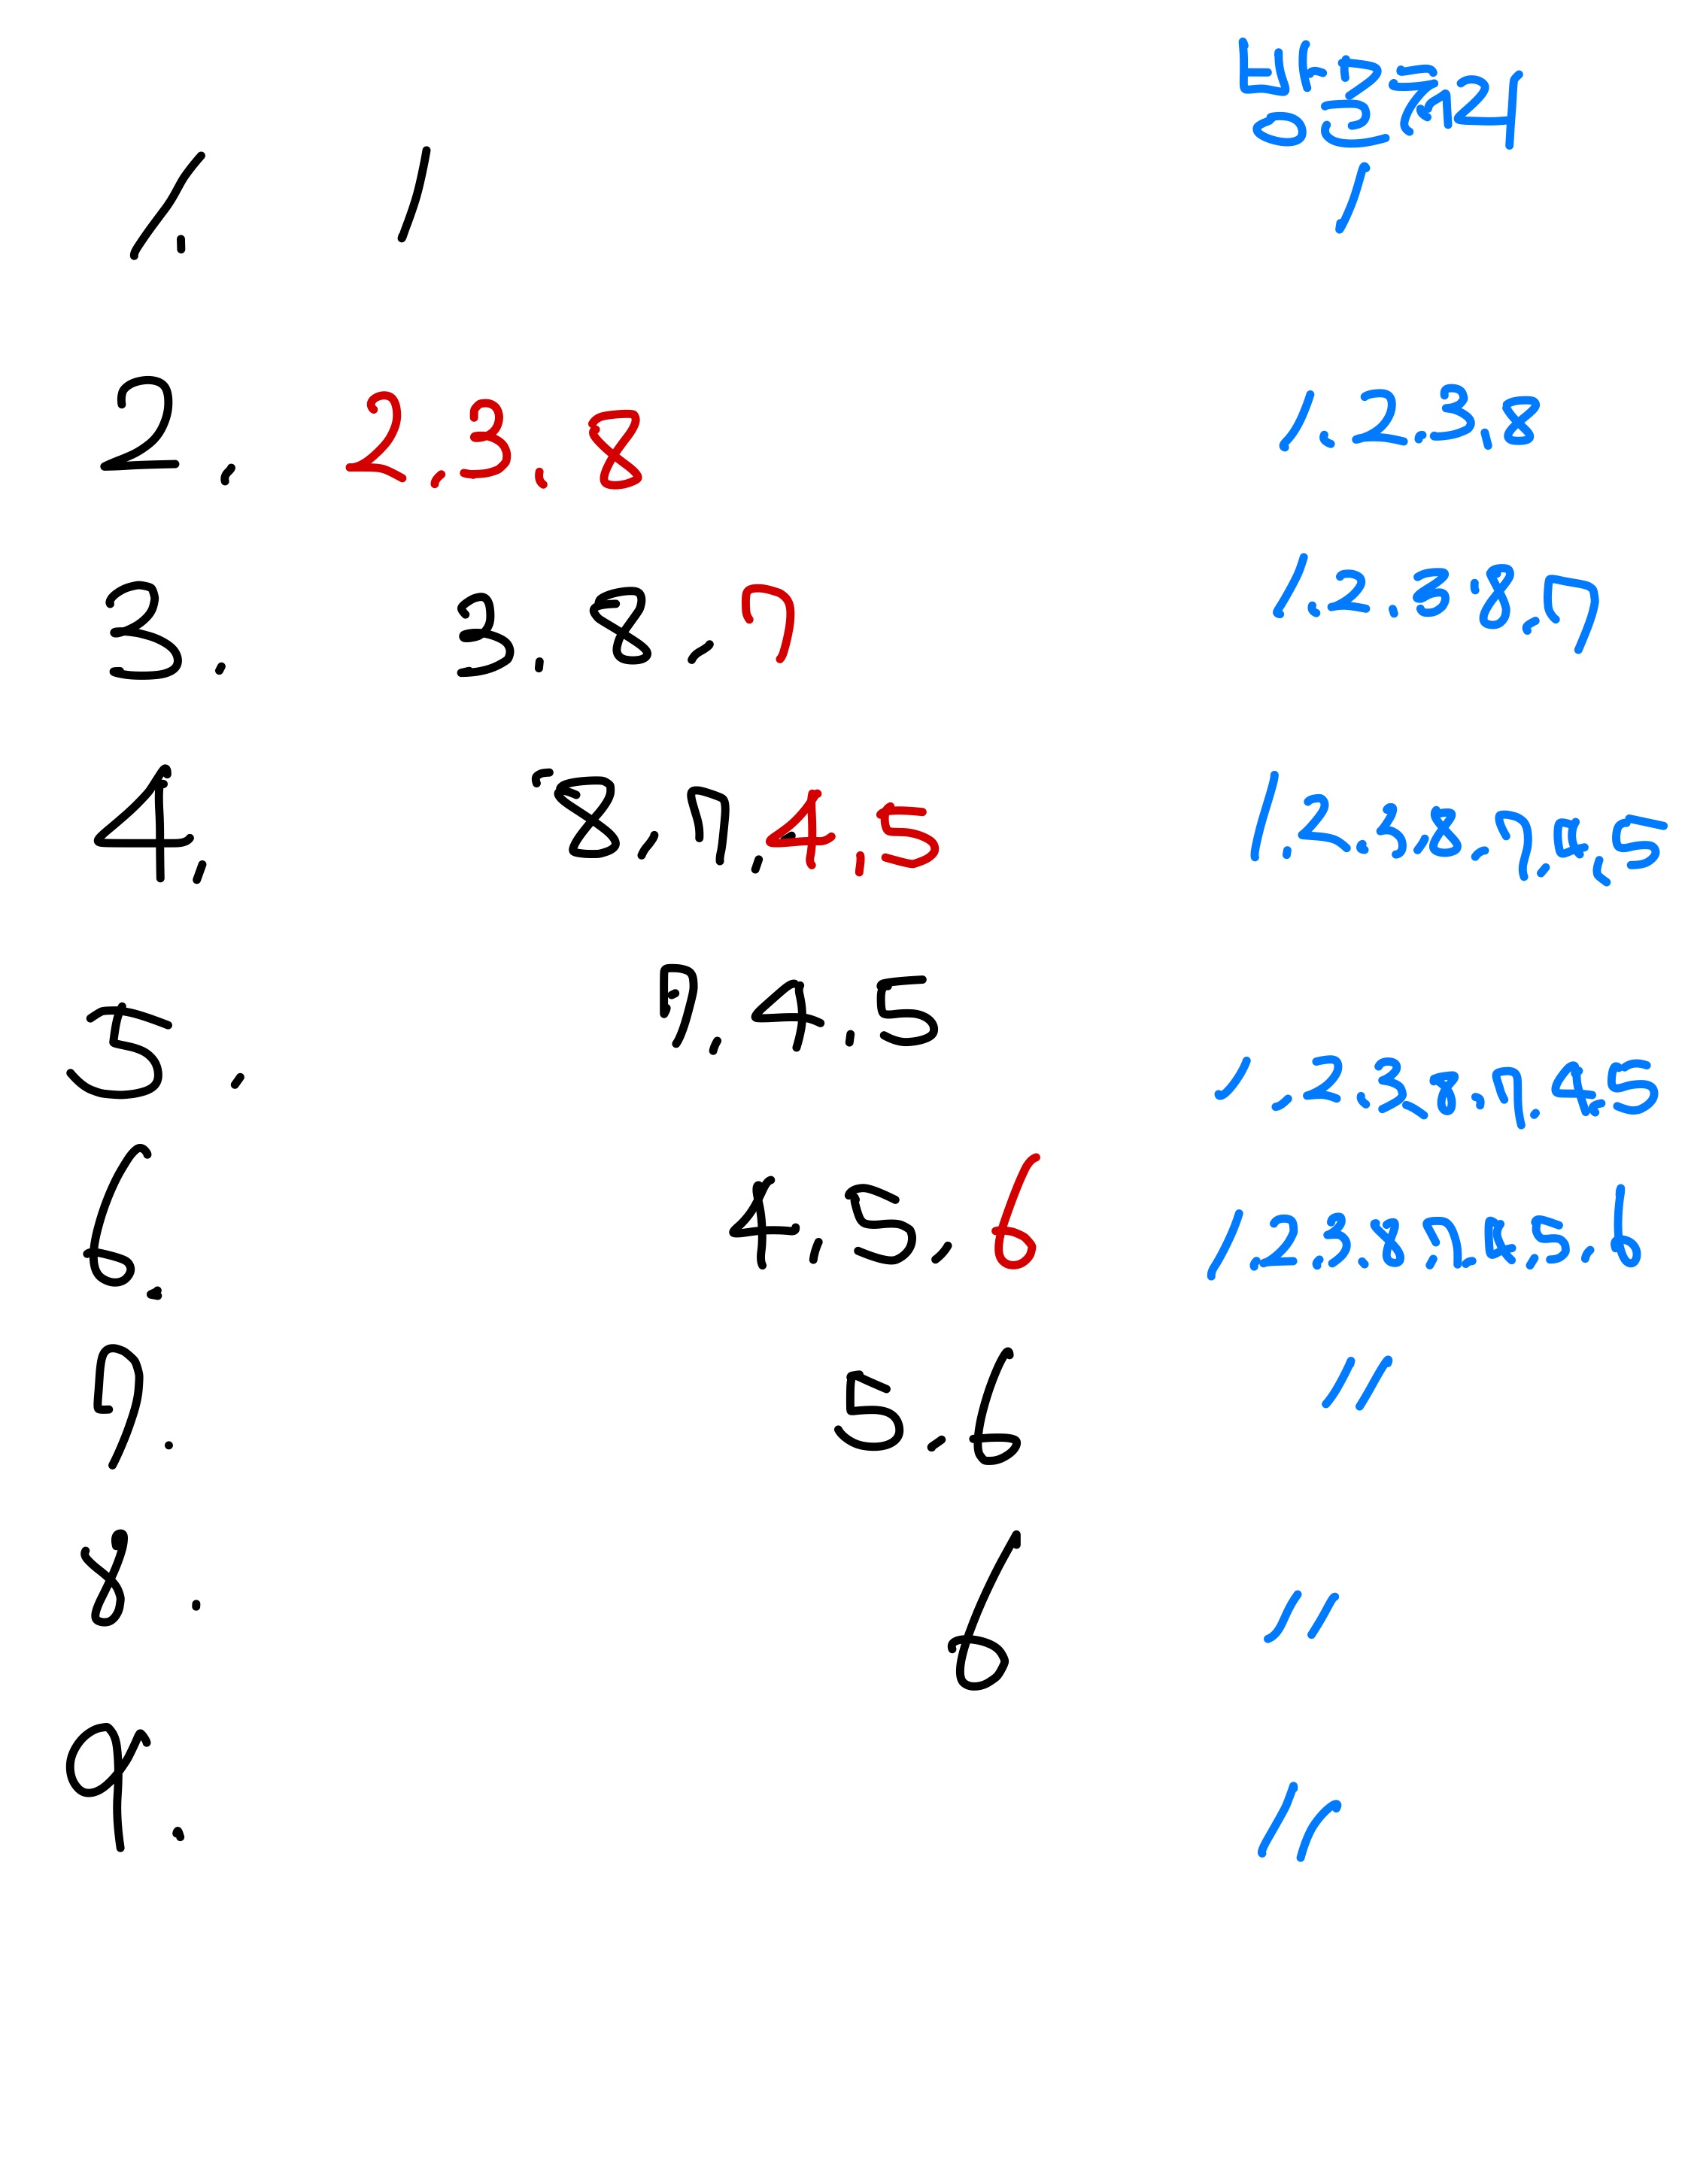 방문처리
1. 1 1
2. 2, 3, 8 1, 2, 3, 8
3. 3, 8, 7 1, 2, 3, 8, 7
4. 8, 7, 4, 5 1, 2, 3, 8, 7, 4, 5
5. 7, 4, 5 1, 2, 3, 8, 7, 4, 5
6. 4, 5, 6 1, 2, 3, 8, 7, 4, 5, 6
7. 5, 6 //
8. 6 //
9. //